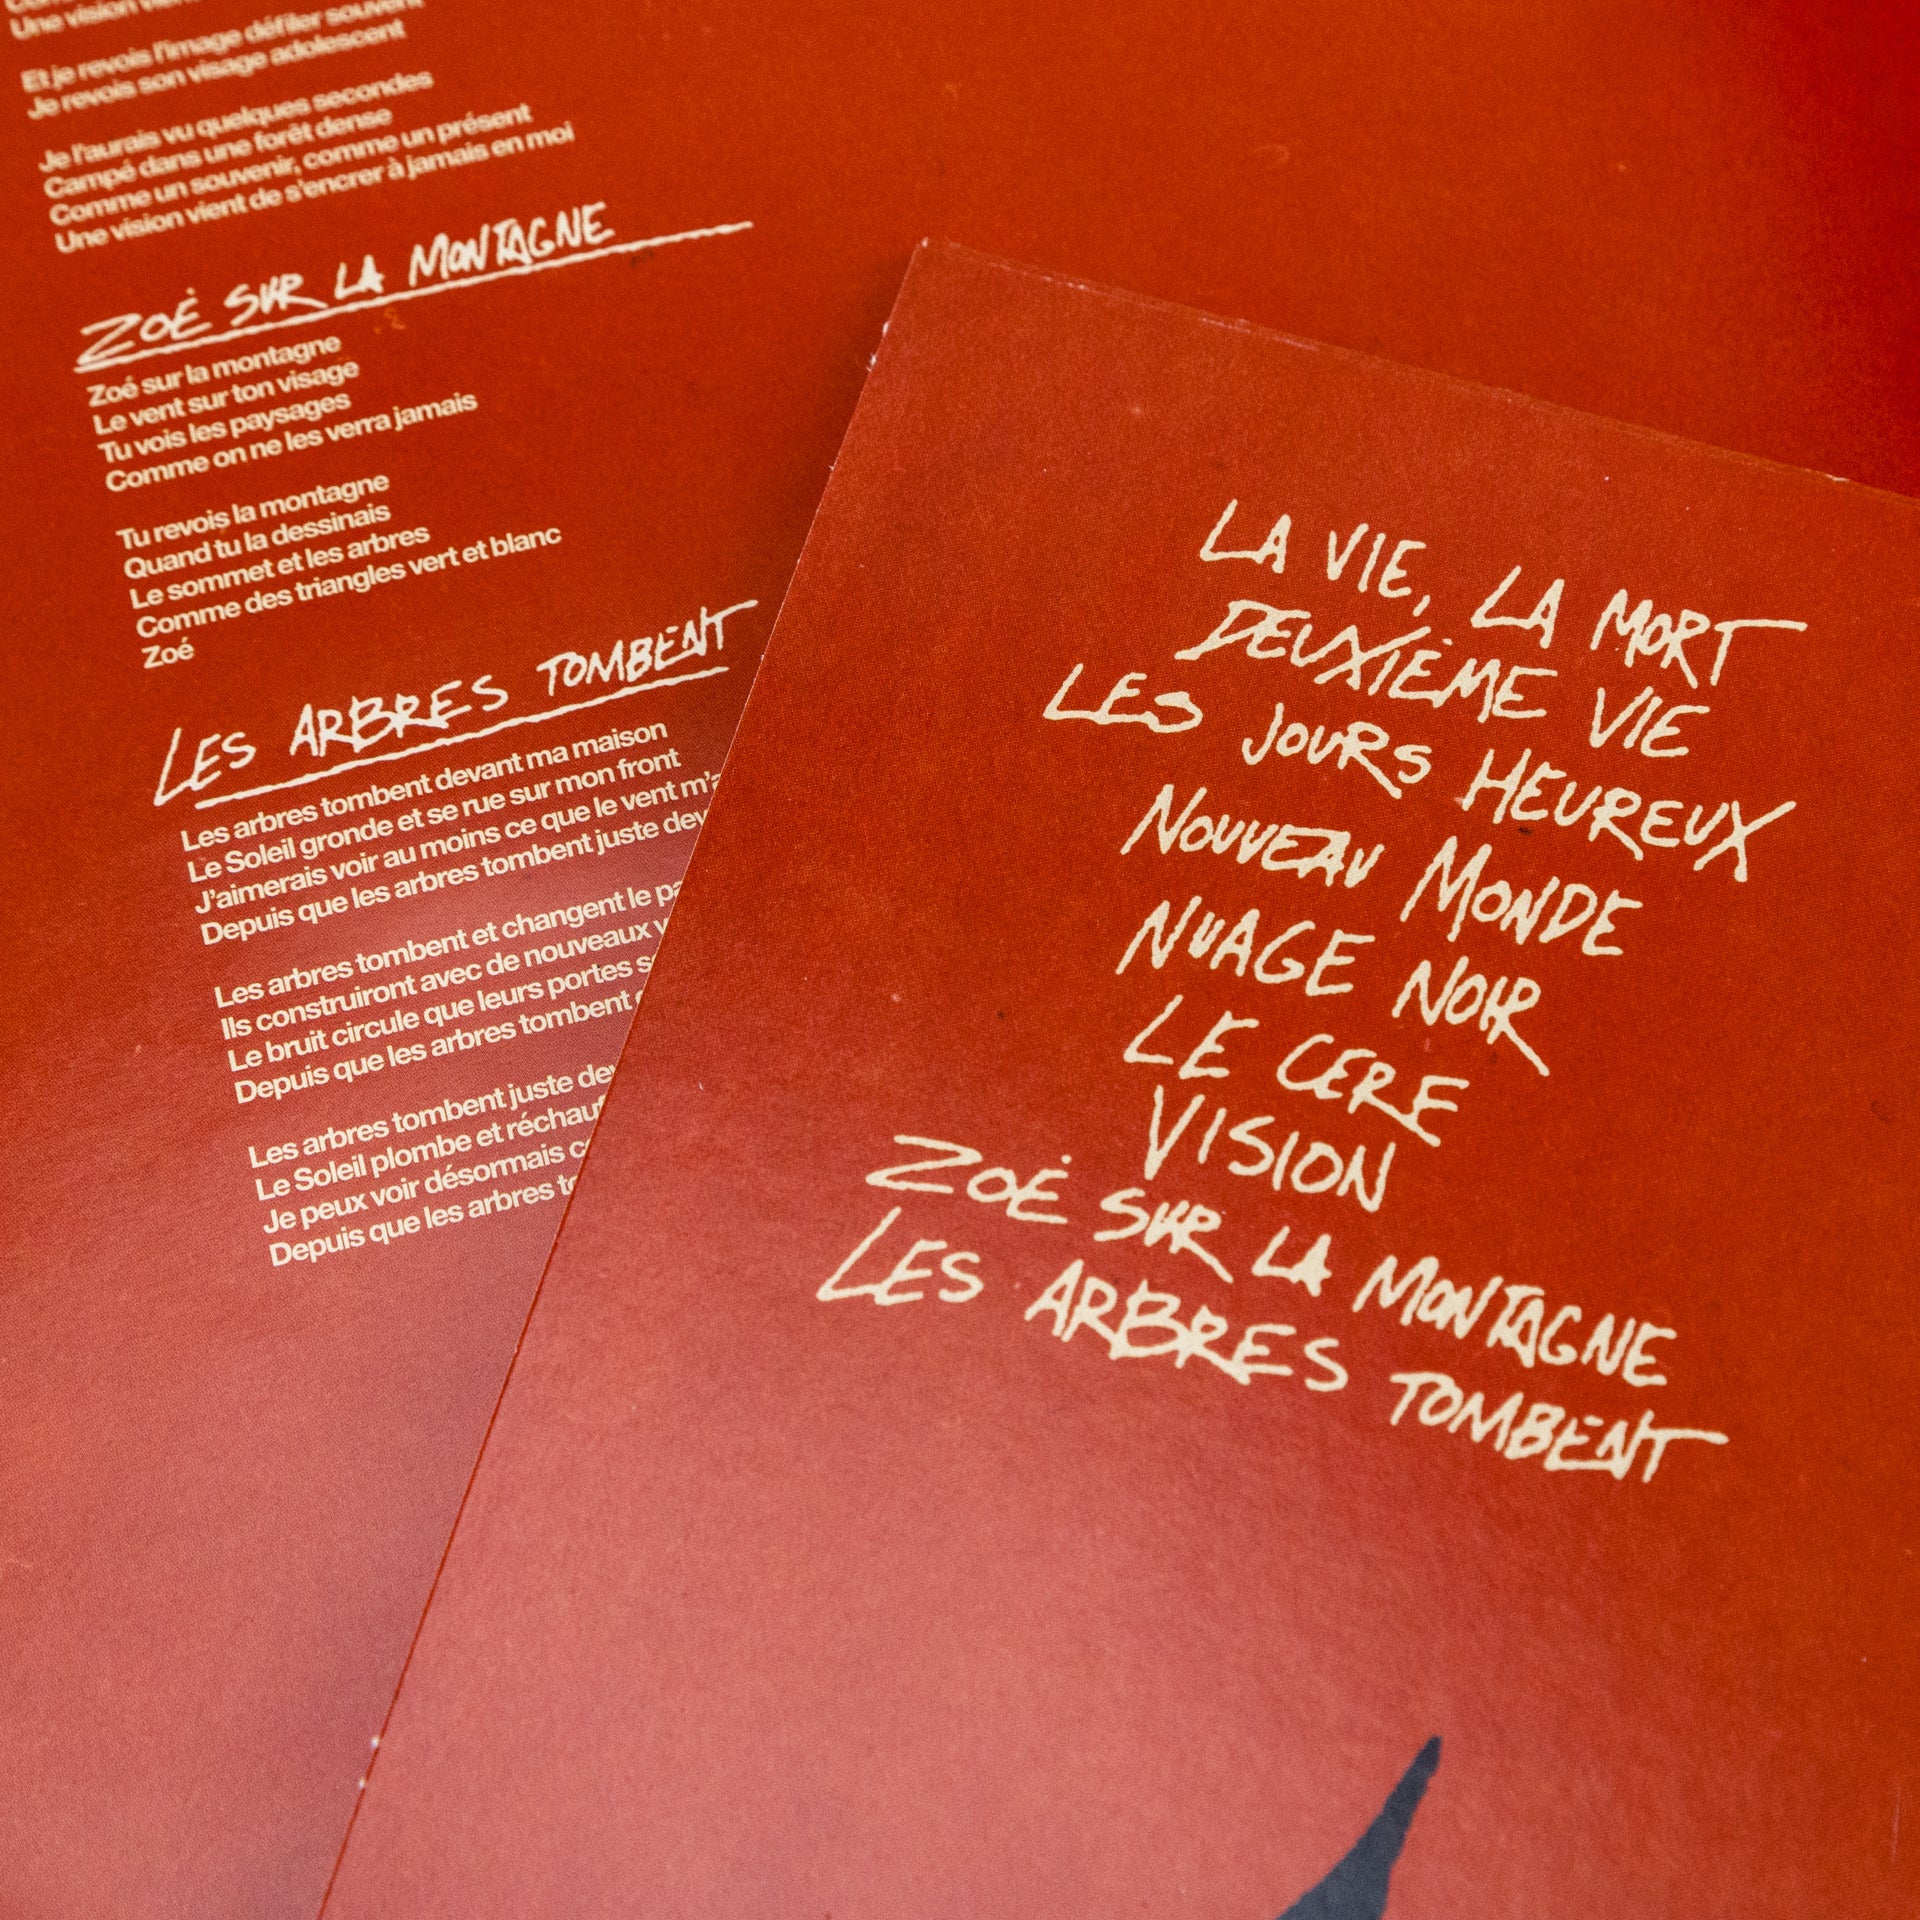 Une vision vien
Et je revois l'image défiler souvent
Je revois son visage adolescent
Je l'aurais vu quelques secondes
Campé dans une forêt dense
Comme un souvenir, comme un présent
Une vision vient de s'encrer à jamais en moi
ZOÉ SUR LA MONTAGNE
Zoé sur la montagne
Le vent sur ton visage
Tu vois les paysages
Comme on ne les verra jamais
Tu revois la montagne
Quand tu la dessinais
Le sommet et les arbres
Comme des triangles vert et blanc
Zoé
LES ARBRES TOMBENT
Les arbres tombent devant ma maison
Le Soleil gronde et se rue sur mon front
J'aimerais voir au moins ce que le vent m'a
Depuis que les arbres tombent juste dev
Les arbres tombent et changent le pa
Ils construiront avec de nouveaux
Le bruit circule que leurs portes s
Depuis que les arbres tombent
Les arbres tombent juste dev
Le Soleil plombe et réchauf
Je peux voir désormais c
Depuis que les arbres to
LA VIE, LA MORT
DEUXIÈME VIE
LES JOURS HEUREUX
NOUVEAU MONDE
NUAGE NOIR
LE CERE
VISION
ZOÉ SUR LA MONTAGNE
LES ARBRES TOMBENT